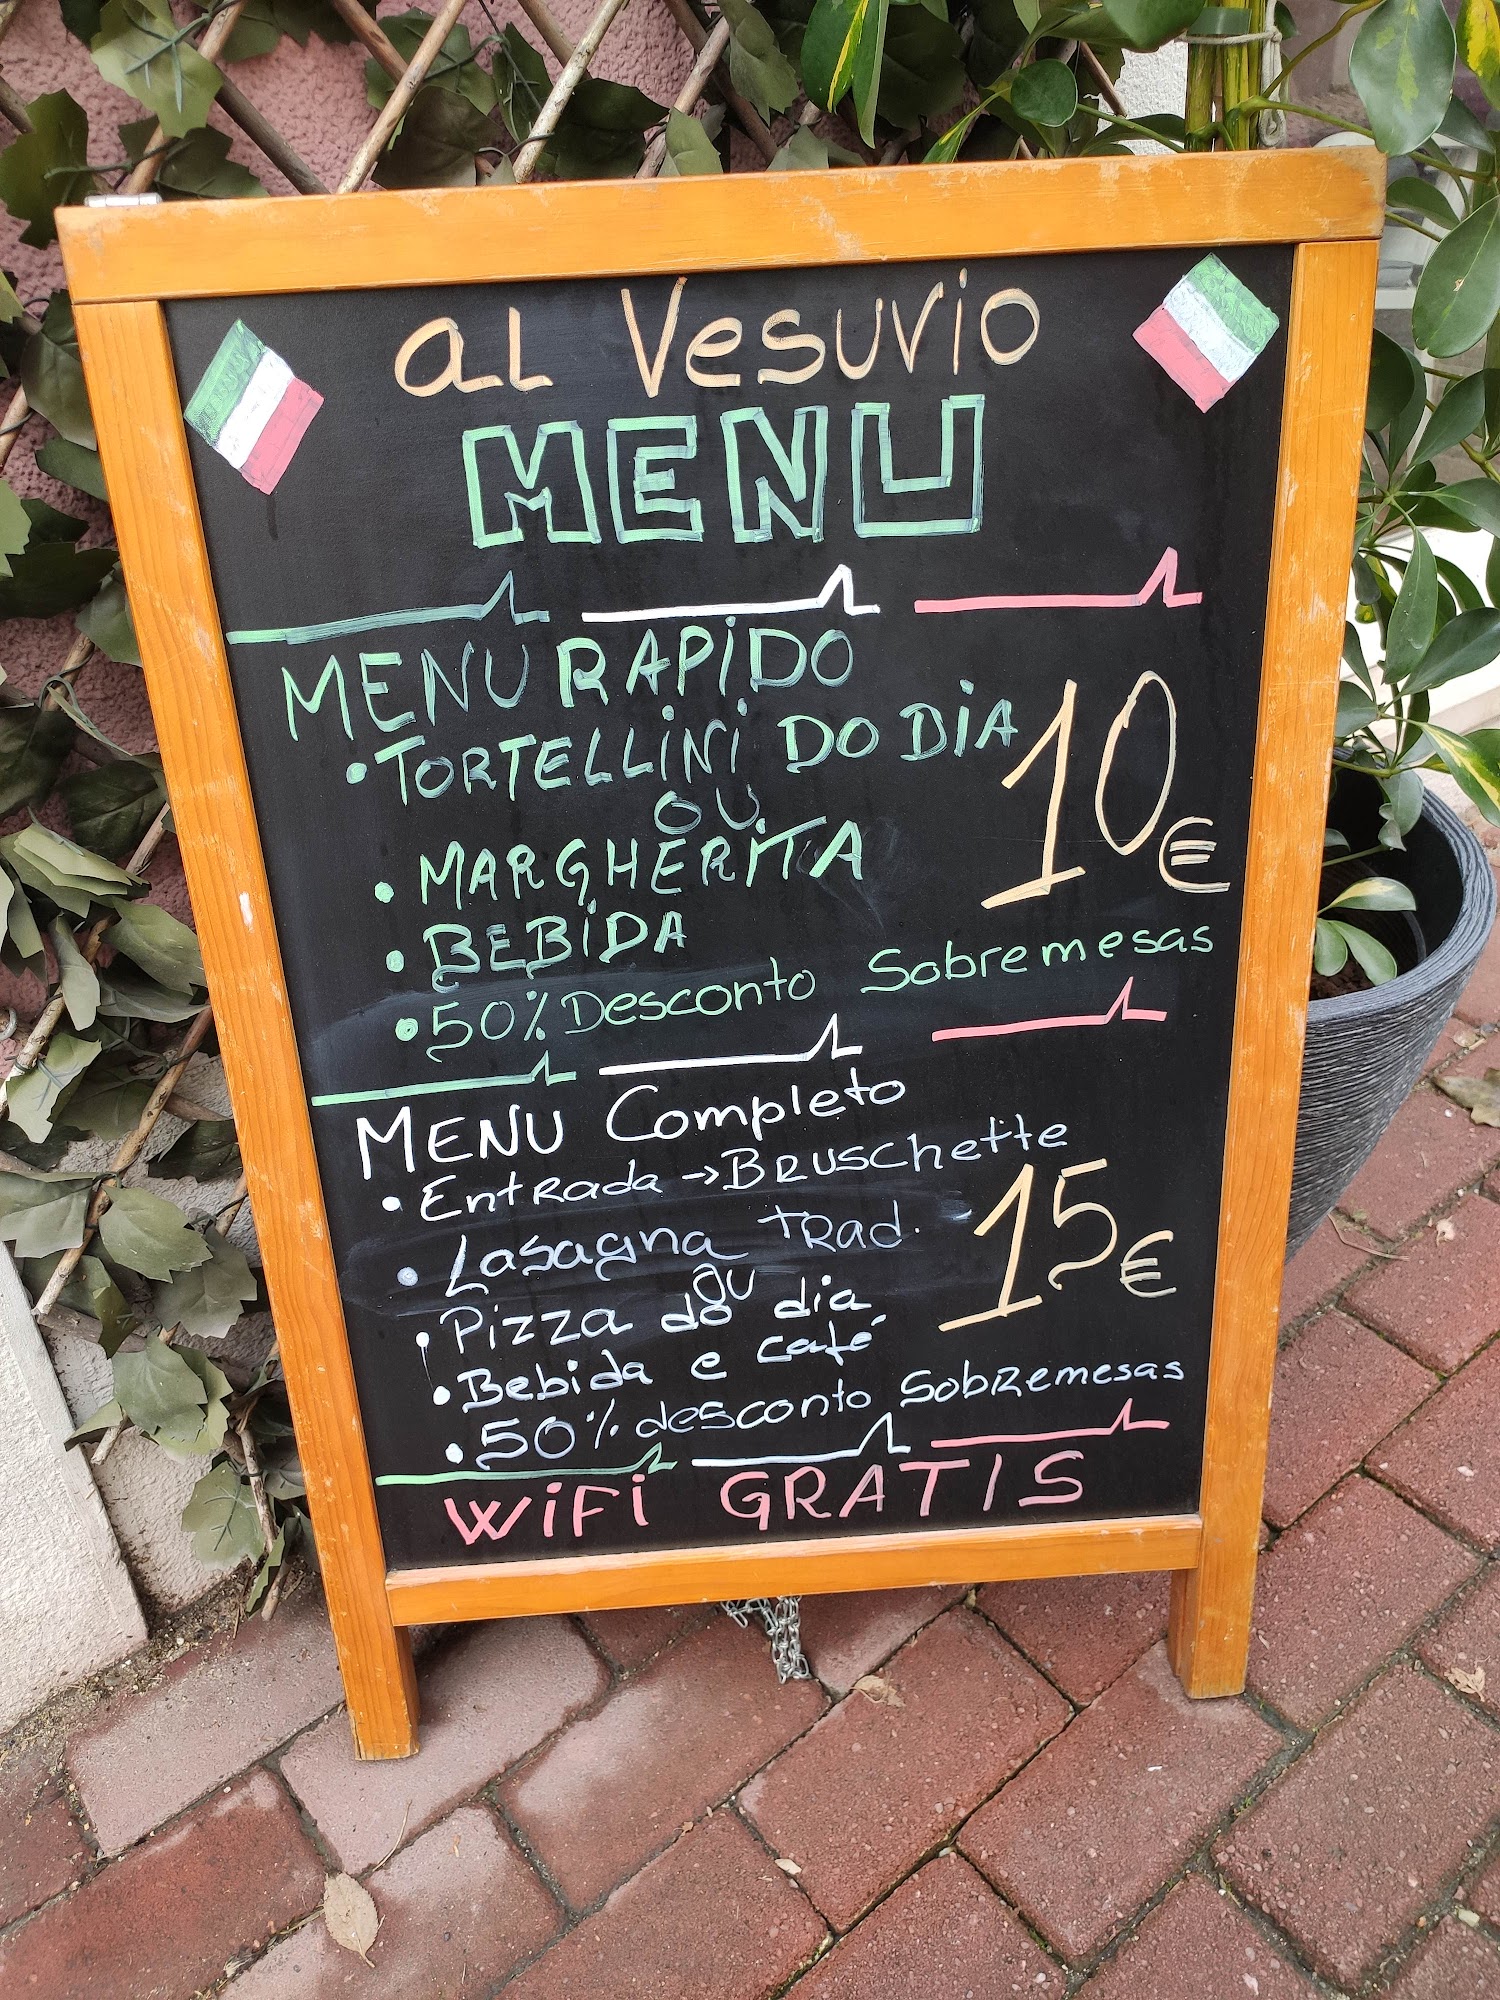 aL Vesuvio
MENU
MENU RAPiDO
• TORTELLiNi DO DiA
OU
• MARGHERITA
• BEBiDA
• 50% Desconto Sobremesas
10€
MENU Completo
• Entrada → Bruschette
• Lasagna trad.
ou
• Pizza do dia
• Bebida e café
• 50% desconto Sobremesas
15€
WiFi GRATIS